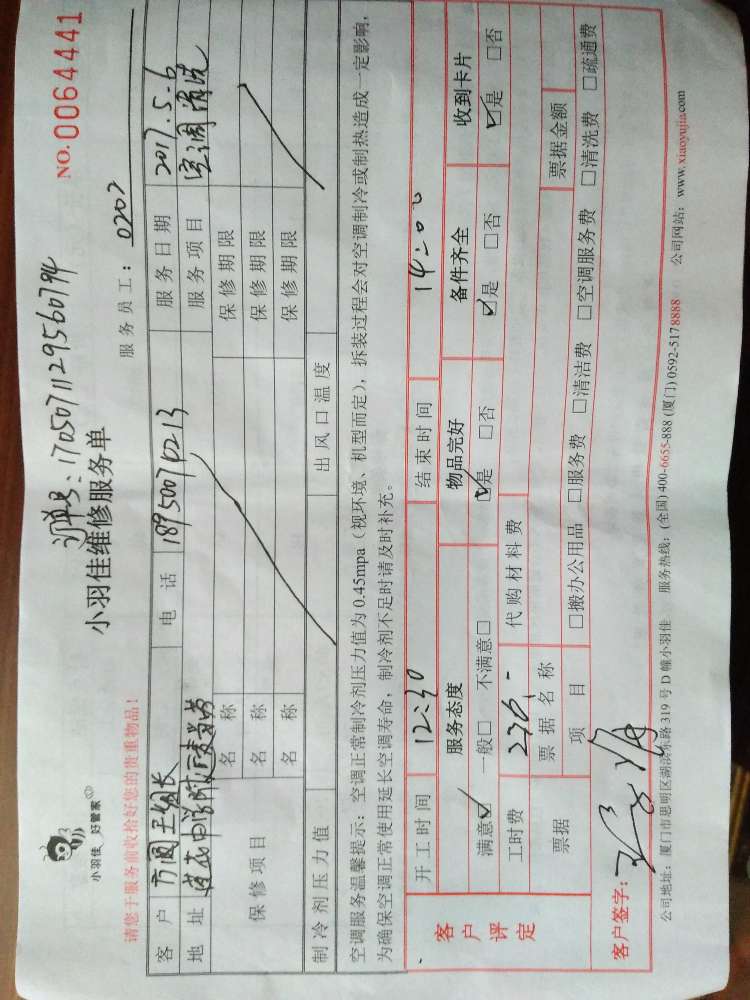 小羽佳 好管家
订单号：170507112956079
小羽佳维修服务单
NO. 0064441
请您于服务前收拾好您的贵重物品！
服务员工：0202
客户 方圆 电话 18950070213 服务日期 2017.5.6
地址 服务项目 空调清洗
保修项目 名称 保修期限
名称 保修期限
名称 保修期限
制冷剂压力值 出风口温度
空调服务温馨提示：空调正常制冷剂压力值为 0.45mpa（视环境、机型而定），拆装过程会对空调制冷或制热造成一定影响，
为确保空调正常使用延长空调寿命，制冷剂不足时请及时补充。
客户评定
开工时间 12:30 结束时间 14:00
服务态度 物品完好 备件齐全 收到卡片
满意☑ 一般□ 不满意□ ☑是 □否 ☑是 □否 ☑是 □否
工时费 270,- 代购材料费
票据 票据名称 票据金额
项目 □搬办公用品 □服务费 □清洁费 □空调服务费 □清洗费 □疏通费
客户签字：
公司地址：厦门市思明区湖滨东路 319 号 D 幢小羽佳 服务热线：(全国) 400-6655-888 (厦门) 0592-5178888 公司网站：www.xiaoyujia.com